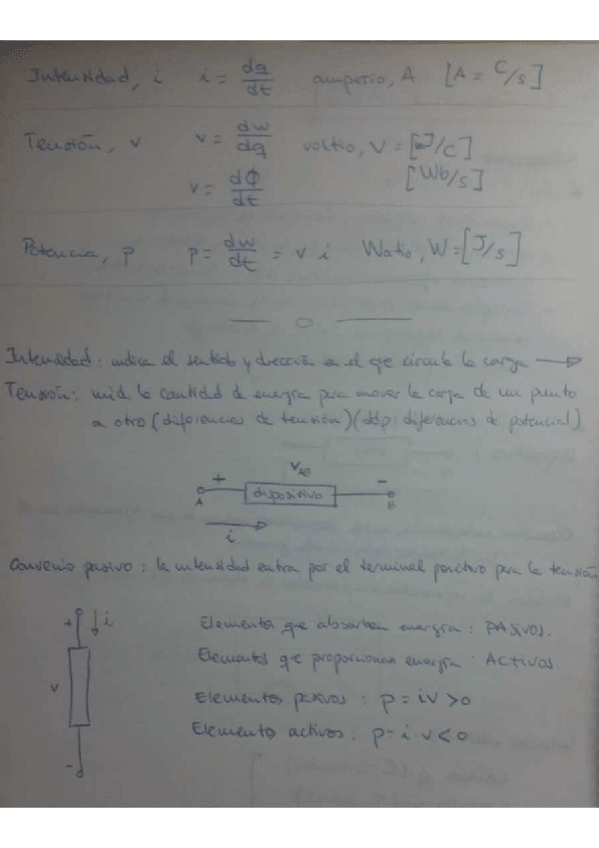 Intensidad, i i = dq/dt amperio, A [A = C/s]
Tensión, v v = dw/dq voltio, V = [J/C]
v = dΦ/dt [Wb/s]
Potencia, p p = dw/dt = v i Watio, W = [J/s]
Intensidad: indica el sentido y dirección en el que circula la carga →
Tensión: mid la cantidad de energía para mover la carga de un punto
a otro (diferencias de tensión) (ddp: diferencias de potencial)
V_AB
+ -
A dispositivo B
i
Convenio pasivo: la intensidad entra por el terminal positivo para la tensión
+ i
v
-
Elementos que absorben energía: PASIVOS.
Elementos que proporcionan energía: ACTIVOS.
Elementos pasivos: p = iv > 0
Elemento activos: p = i·v < 0